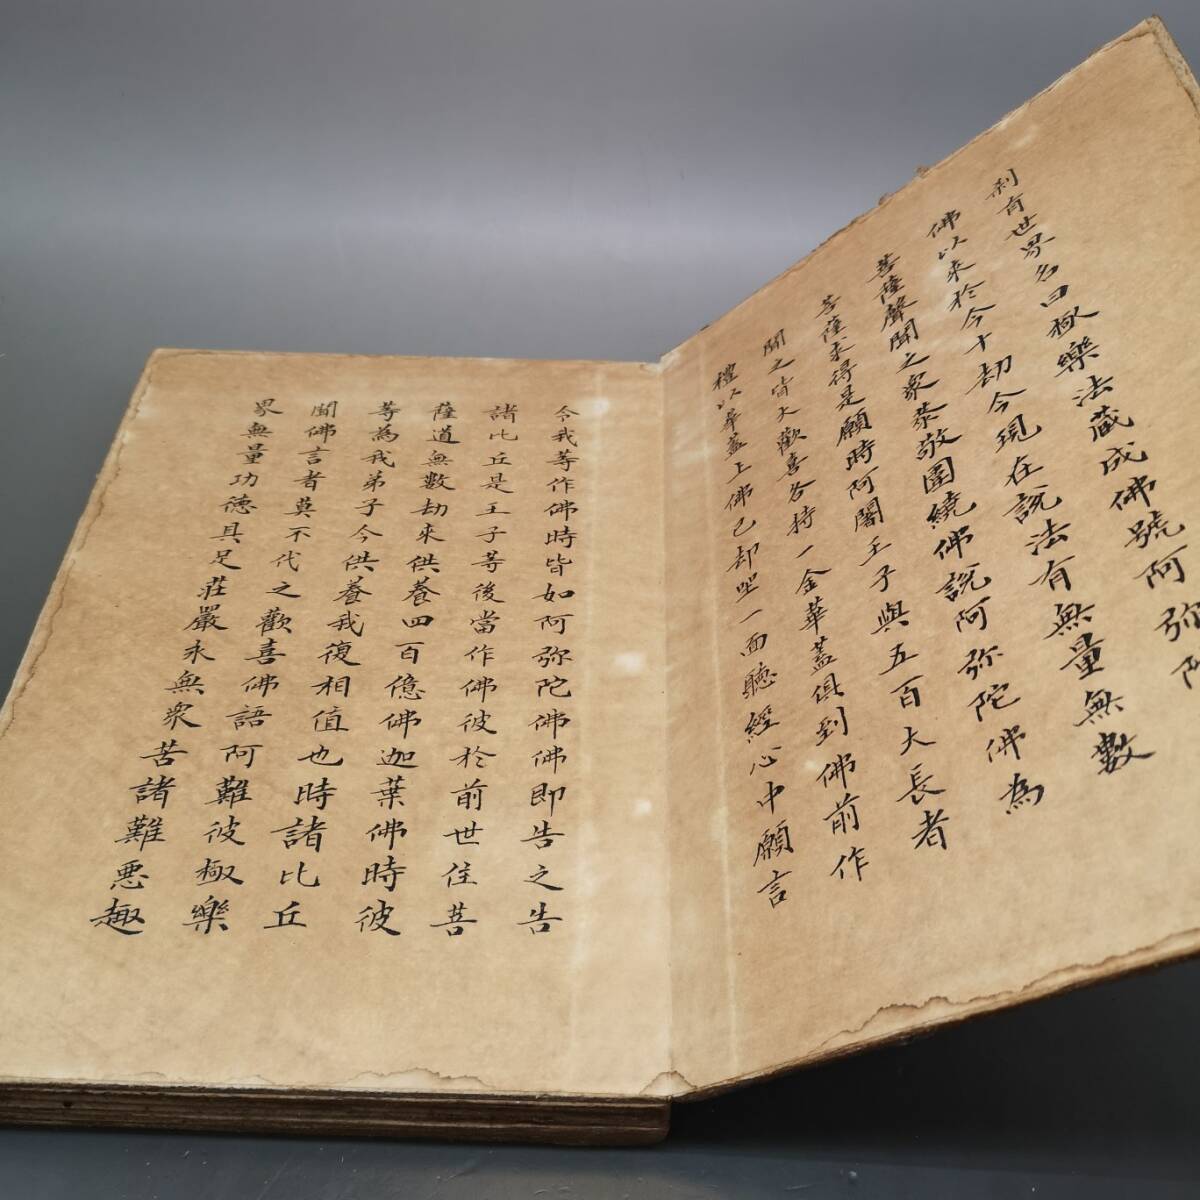 刹有世界名曰極樂法藏成佛號阿弥陀
佛以來於今十劫今現在說法有無量無數
菩薩聲聞之衆恭敬圍繞佛說阿弥陀佛為
菩薩求得是願時阿闍王子與五百大長者
聞之皆大歡喜各持一金華蓋俱到佛前作
禮以華蓋上佛已却坐一面聽經心中願言
今我等作佛時皆如阿弥陀佛佛即告之告
諸比丘是王子等後當作佛彼於前世住菩
薩道無數劫來供養四百億佛迦葉佛時彼
等為我弟子今供養我復相值也時諸比丘
聞佛言者莫不代之歡喜佛語阿難彼極樂
界無量功德具足莊嚴永無衆苦諸難惡趣